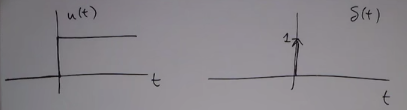 u(t)
t
δ(t)
1
t